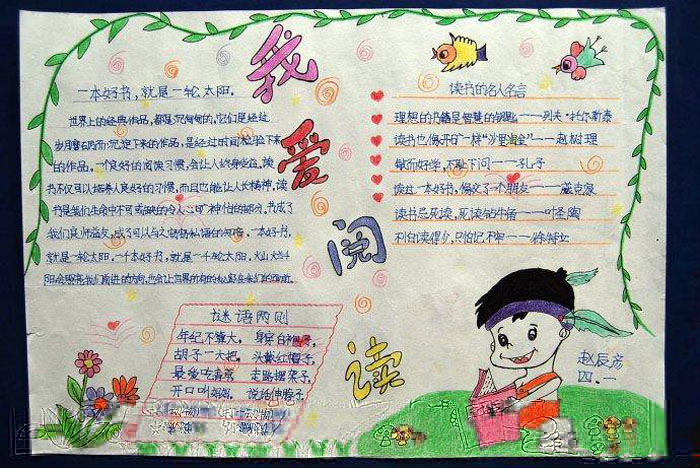 我爱阅读
一本好书，就是一轮太阳。
世界上的经典作品，都是沉甸甸的，它们是经过
岁月磨砺而沉淀下来的作品，是经过时间检验下来
的作品。一个良好的阅读习惯，会让人终身受益。读
书不仅可以培养人良好的习惯，而且也能让人长精神，读
书是我们生命中不可或缺的令人心旷神怡的部分。书成了
我们良师益友，成了可以与之窃窃私语的知音。一本好书，
就是一轮太阳，一千本好书，就是一千轮太阳，
谜语两则
年纪不算大，身穿白袍褂，
胡子一大把，头戴红帽子，
最爱吃青菜，走路摆架子，
开口叫妈妈。说话伸脖子
读书的名人名言
理想的书籍是智慧的钥匙——列夫·托尔斯泰
读书也像开矿一样"沙里淘金"——赵树理
敏而好学，不耻下问——孔子
读过一本好书，像交了一个朋友——臧克家
读书忌死读，死读钻牛角——叶圣陶
不怕读得少，只怕记不牢——徐特立
赵辰
四.一